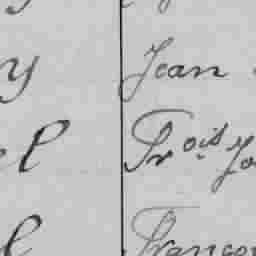 y Jean
el Fr.ois Jo
l Franço